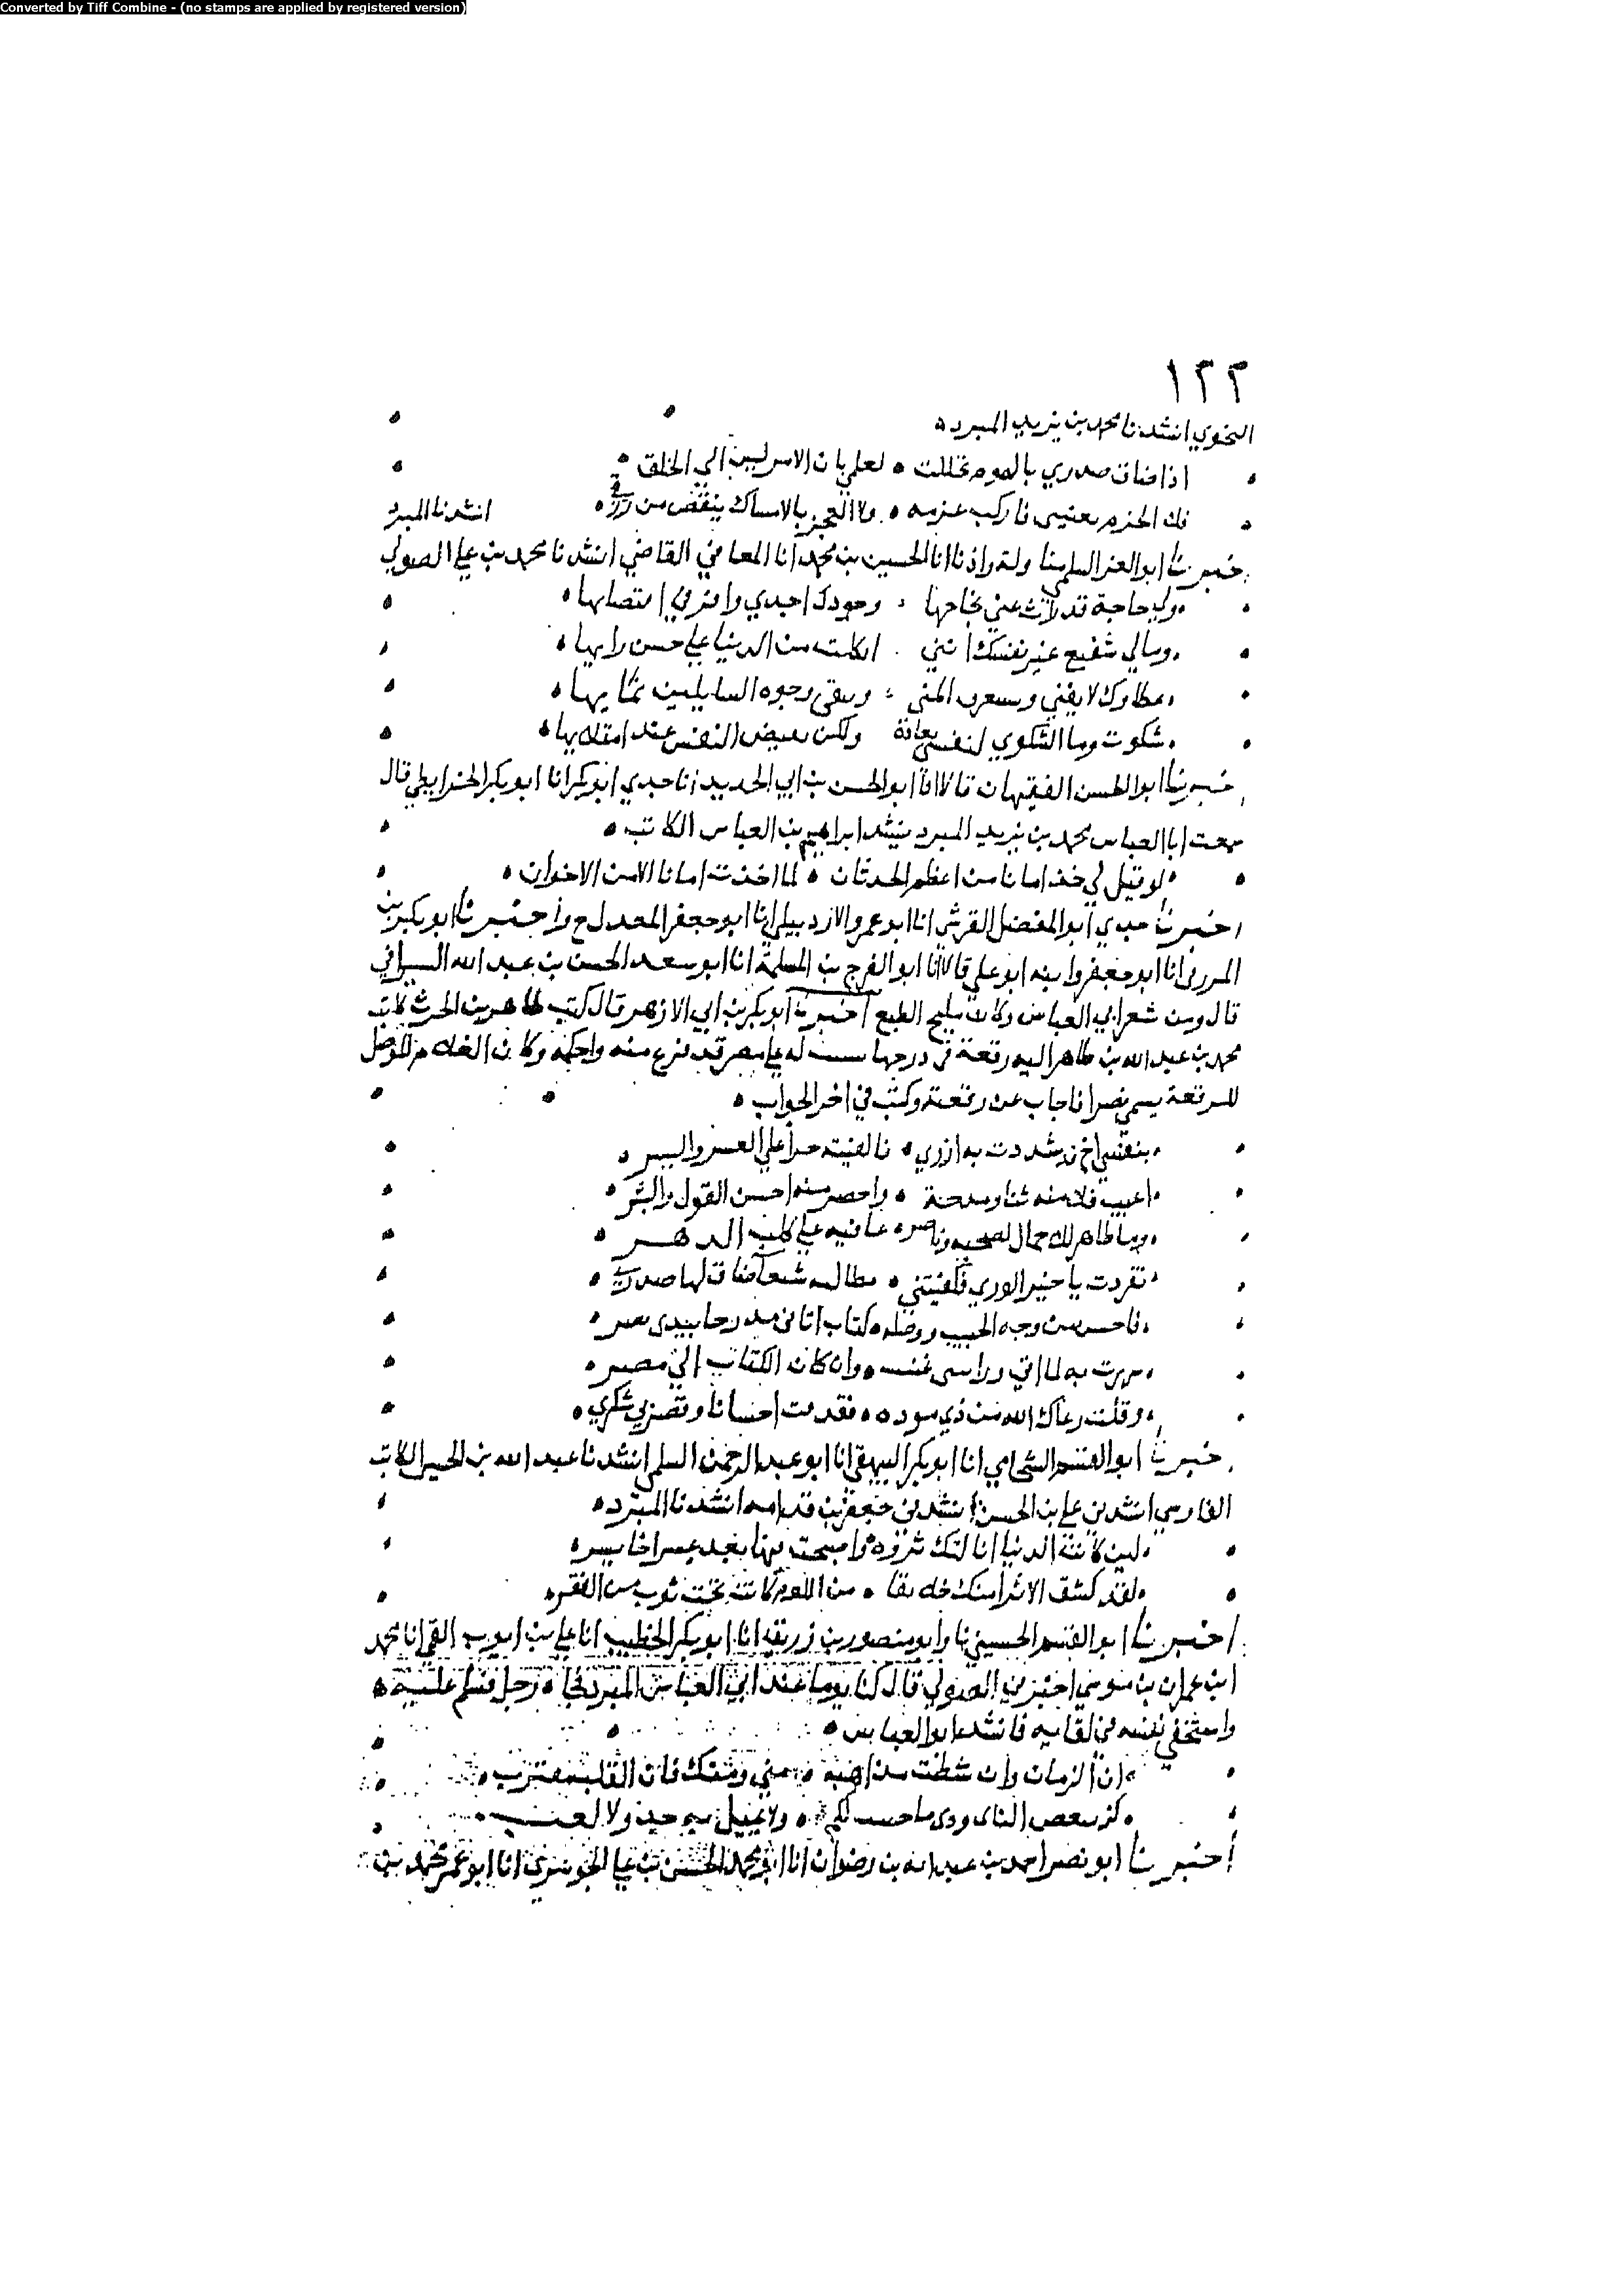 Converted by Tiff Combine - (no stamps are applied by registered version)
١٢٢
النحوي انشدنا محمد بن يزيد المبرد
اذا ضاق صدري بالهموم تخللت لعلمي بان الامر ليس الي الخلق
انشدنا المبرد
ابو العز السلمي مناولة واذنا انا الحسين بن محمد انا المعافي القاضي انشدنا محمد بن علي الصولي
ولي حاجة قد راث عني نجاحها وجودك اجدي وافر في
ومالي شفيع غير نفسك انني اتكلت من الدنيا علي حسن رايها
عطاوك لا يفني ويستغرق المني وتبقي وجوه السايلين بمايها
شكوت وما الشكوي لنفسي بعادة ولكن تفيض النفس عند امتلايها
ابو الحسن الفقيهان قالا انا ابو الحسن بن ابي الحديد انا جدي ابو بكر انا ابو بكر الخرايطي قال
سمعت ابا العباس محمد بن يزيد المبرد ينشد ابراهيم بن العباس الكاتب
لو قيل لي خذ امانا من اعظم الحدثان لما اخذت امانا الا من الاخوان
اخبرنا جدي ابو المفضل القرشي انا ابو عمرو الاردبيلي انا ابو جعفر المعدل ح واخبرنا ابو بكر بن
انا ابو جعفر وابنه ابو علي قالا انا ابو الفرج بن المسلمة انا ابو سعيد الحسن بن عبد الله السيرافي
قال ومن شعر ابي العباس وكان مليح الطبع اخبرنا ابو بكر بن ابي الازهر قال كتب طاهر بن الحرث كاتب
محمد بن عبد الله بن طاهر اليه رقعة في درجها
للرقعة يسمي نصرا فاجاب عن رقعته وكتب في اخر الجواب
بنفسي اخ شددت به ازري فالفيته حرا علي العسر واليسر
اغيب فلي منه ثنا ومدحة واحضر منه احسن القول والبشر
وما طاهر الا جمال لصحبه وناصر عافيه علي كلب الدهر
تفردت يا خير الوري فكفيتني مطالبة شنعا ضاق لها صدري
فاحسن من وجه الحبيب ووصله كتاب اتاني مدرجا بيدي نصر
سررت به لما اتي ورايتني غنيت وان كان الكتاب الي مصر
وقلت رعاك الله من ذي مودة فقد فت احسانا وقصر بي شكري
ابو القسم الشحامي انا ابو بكر البيهقي انا ابو عبد الرحمن السلمي انشدنا عبد الله بن الحسين الكاتب
الفارسي انشدني علي بن الحسن انشدني جعفر بن قدامه انشدنا المبرد
لين كانت الدنيا انالتك ثروة واصبحت فيها بعد عسر اخا يسر
لقد كشف الاثرا منك خلايقا من اللوم كانت تحت ثوب من الفقر
اخبرنا ابو القسم الحسيني نا وابو منصور بن زريق انا ابو بكر الخطيب انا علي بن ايوب القمي انا محمد
ابن عمران بن موسي اخبرني الصولي قال كنا يوما عند ابي العباس المبرد رجل فسلم عليه
في لقايه فانشد ابو العباس
ان الزمان وان شطت مني ومنك فان القلب مقترب
اخبرنا ابو نصر احمد بن عبد الله بن رضوان انا ابو محمد الحسن بن علي الجوهري انا ابو عمر محمد بن